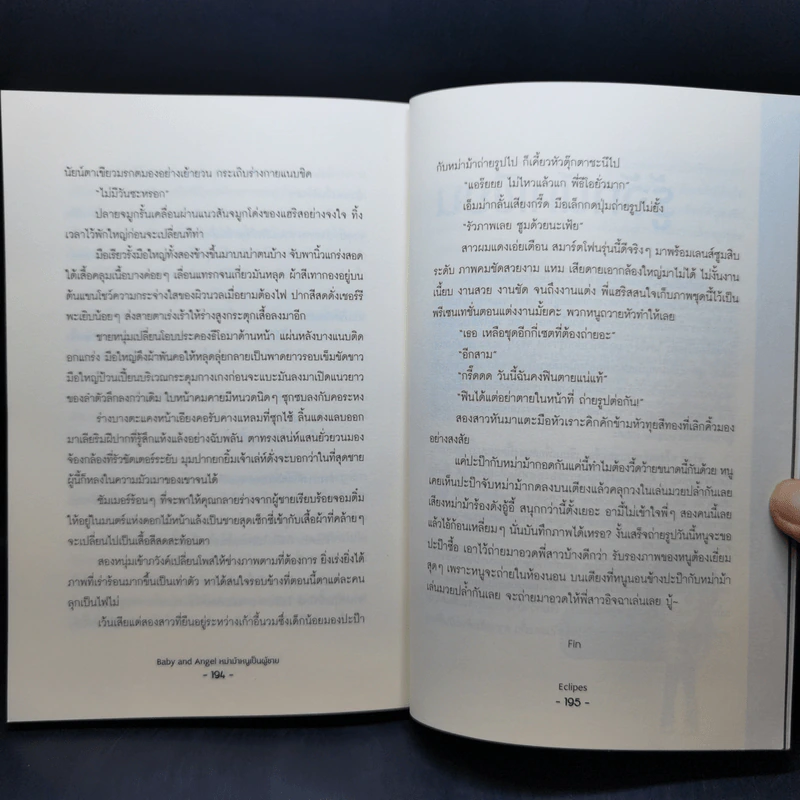 นัยน์ตาเขียวมรกตมองอย่างเย้ายวน กระเถิบร่างกายแนบชิด
"ไม่มีวันซะหรอก"
ปลายจมูกรั้นเคลื่อนผ่านแนวสันจมูกโด่งของแฮริสอย่างจงใจ ทิ้ง
เวลาไว้พักใหญ่ก่อนจะเปลี่ยนทีท่า
มือเรียวรั้งมือใหญ่ทั้งสองข้างขึ้นมาบนบ่าตนบ้าง จับพานิ้วแกร่งสอด
ใต้เสื้อคลุมเนื้อบางค่อยๆ เลื่อนแทรกจนเสี่ยวมันหลุด ผ้าสีเทากองอยู่บน
ต้นแขนโชว์ความกระจ่างใสของผิวนวลเมื่อยามต้องไฟ ปากสีสดดั่งเชอร์รี
พะเยิบน้อยๆ ส่งสายตาเร่งเร้าให้ร่างสูงกระตุกเสื้อลงมาอีก
ชายหนุ่มเปลี่ยนโอบประคองธีโอมาด้านหน้า แผ่นหลังบางแนบติด
อกแกร่ง มือใหญ่ดึงผ้าพันคอให้หลุดลุ่ยกลายเป็นพาดยาวรอบเข็มขัดขาว
มือใหญ่ป้วนเปี้ยนบริเวณกระดุมกางเกงก่อนจะแบะมันลงมาเปิดแนวยาว
ของลำตัวลึกลงกว่าเดิม ใบหน้าคมคายมีหนวดนิดๆ ซุกซบลงกับคอระหง
ร่างบางตะแคงหน้าเอียงคอรับคางแหลมที่ซุกไซ้ ลิ้นแดงแลบออก
มาเลียริมฝีปากที่รู้สึกแห้งแล้งอย่างฉับพลัน ตาทรงเสน่ห์แสนยั่วยวนมอง
จ้องกล้องที่รัวชัตเตอร์ระยับ มุมปากยกยิ้มเจ้าเล่ห์ดั่งจะบอกว่าในที่สุดชาย
ผู้นี้ก็หลงในความมัวเมาของเขาจนได้
ซัมเมอร์ร้อนๆ ที่จะพาให้คุณกลายร่างจากผู้ชายเรียบร้อยจอมติ๋ม
ให้อยู่ในมนตร์แห่งดอกไม้หน้าแล้งเป็นชายสุดเซ็กซี่เข้ากับเสื้อผ้าที่คล้ายๆ
จะเปลี่ยนไปเป็นเสื้อสีสดสะท้อนตา
สองหนุ่มเข้าภวังค์เปลี่ยนโพสให้ช่างภาพตามที่ต้องการ ยิ่งเร่งยิ่งได้
ภาพที่เร่าร้อนมากขึ้นเป็นเท่าตัว หาได้สนใจรอบข้างที่ตอนนี้ตาแต่ละคน
ลุกเป็นไฟไม่
เว้นเสียแต่สองสาวที่ยืนอยู่ระหว่างเก้าอี้นวมซึ่งเด็กน้อยมองปะป๊า
Baby and Angel หม่าม้าหนูเป็นผู้ชาย
- 194 -
กับหม่าม้าถ่ายรูปไป ก็เคี้ยวหัวตุ๊กตาชะนีไป
"แอร๊ยยย ไม่ไหวแล้วแก พี่ธีโอยั่วมาก"
เอ็มม่ากลั้นเสียงกรี๊ด มือเล็กกดปุ่มถ่ายรูปไม่ยั้ง
"รัวภาพเลย ซูมด้วยนะเฟ้ย"
สาวผมแดงเอ่ยเตือน สมาร์ตโฟนรุ่นนี้ดีจริงๆ มาพร้อมเลนส์ซูมสิบ
ระดับ ภาพคมชัดสวยงาม แหม เสียดายเอากล้องใหญ่มาไม่ได้ ไม่งั้นงาน
เนี้ยบ งานสวย งานชัด จนถึงงานแต่ง พี่แฮริสสนใจเก็บภาพชุดนี้ไว้เป็น
พรีเซนเทชั่นตอนแต่งงานมั้ยคะ พวกหนูถวายหัวทำให้เลย
"เธอ เหลือชุดอีกกี่เซตที่ต้องถ่ายอะ"
"อีกสาม"
"กรี๊ดดด วันนี้ฉันคงฟินตายแน่แท้"
"ฟินได้แต่อย่าตายในหน้าที่ ถ่ายรูปต่อกัน!"
สองสาวหันมาแตะมือหัวเราะคิกคักข้ามหัวทุยสีทองที่เลิกคิ้วมอง
อย่างสงสัย
แค่ปะป๊ากับหม่าม้ากอดกันแค่นี้ทำไมต้องวี้ดว้ายขนาดนี้กันด้วย หนู
เคยเห็นปะป๊าจับหม่าม้ากดลงบนเตียงแล้วคลุกวงในเล่นมวยปล้ำกันเลย
เสียงหม่าม้าร้องดังอู้อี้ สนุกกว่านี้ตั้งเยอะ อามี่ไม่เข้าใจพี่ๆ สองคนนี้เลย
แล้วไอ้ก้อนเหลี่ยมๆ นั่นบันทึกภาพได้เหรอ? งั้นเสร็จถ่ายรูปวันนี้หนูจะขอ
ปะป๊าซื้อ เอาไว้ถ่ายมาอวดพี่สาวบ้างดีกว่า รับรองภาพของหนูต้องเยี่ยม
สุดๆ เพราะหนูจะถ่ายในห้องนอน บนเตียงที่หนูนอนข้างปะป๊ากับหม่าม้า
เล่นมวยปล้ำกันเลย จะถ่ายมาอวดให้พี่สาวอิจฉาเล่นเลย บู้-
Fin
Eclipes
- 195 -